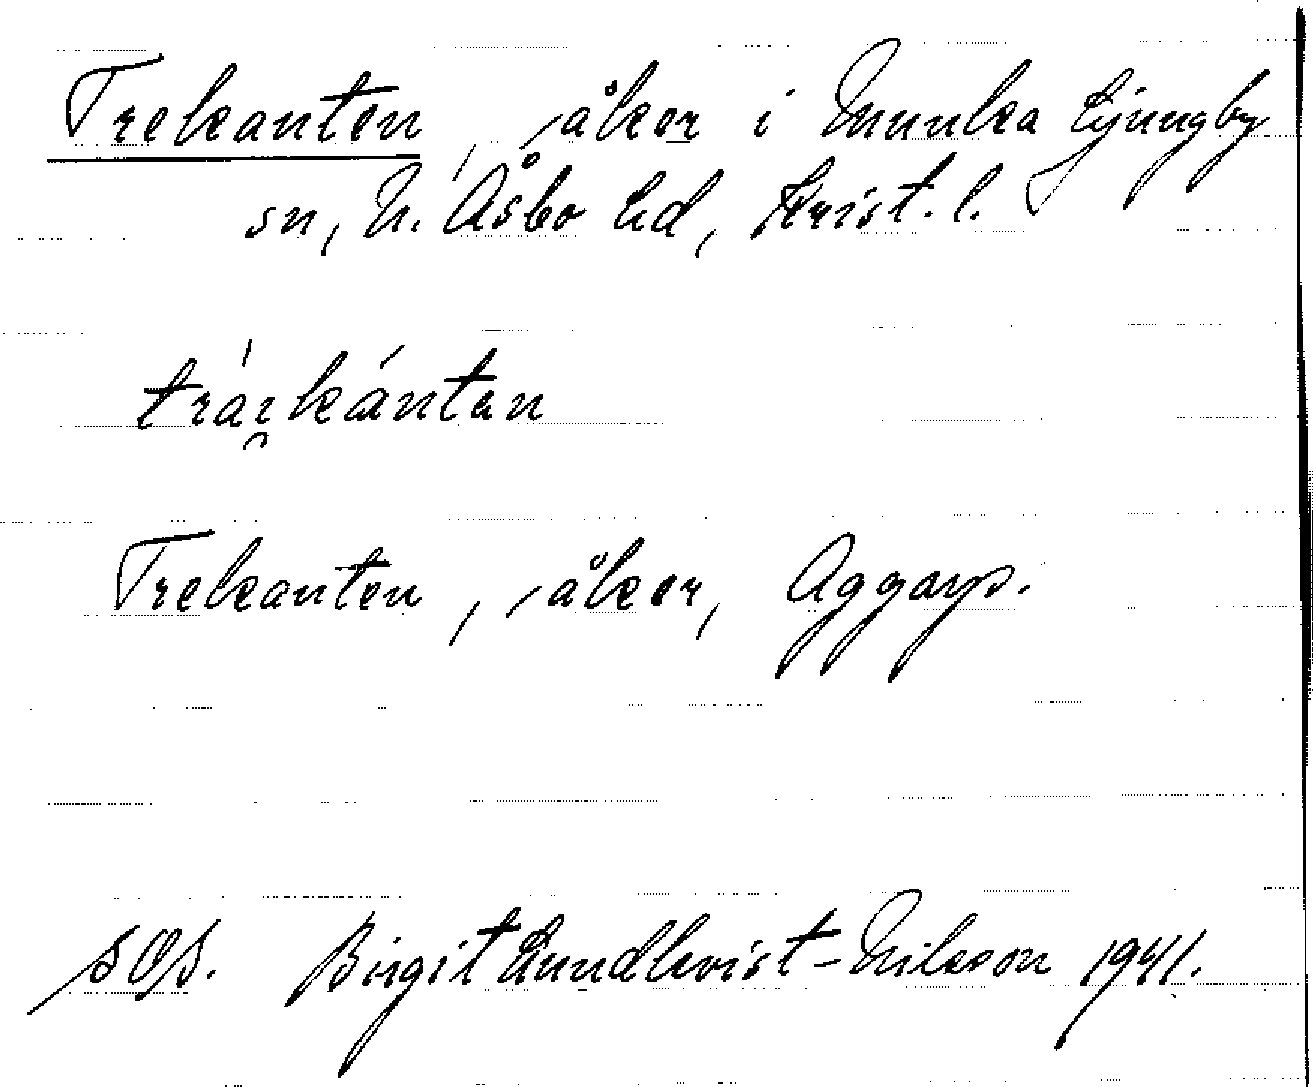 Trekanten, åker i Munka Ljungby
sn, N. Åsbo hd, Krist. l.
Trekanten, åker, Aggarp.
SOS. Birgit Lundkvist-Nilsson 1941.